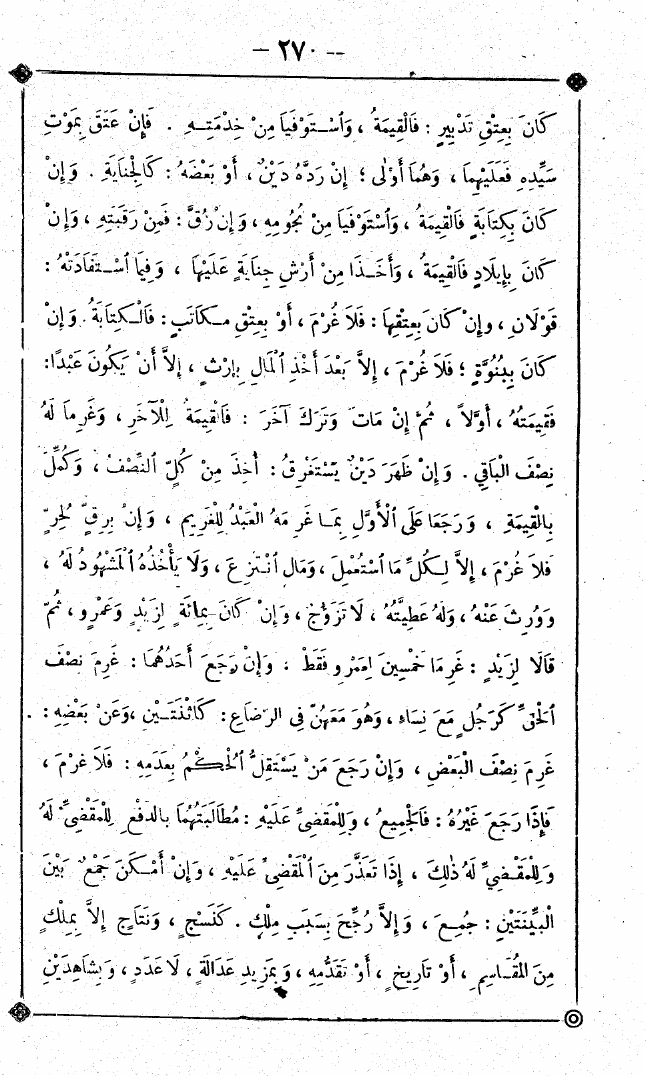 -- ٢٧٠ --
كَانَ بِعِتْقِ تَدْبِيرٍ : فَالْقِيمَةُ ، وَاسْتَوْفَيَا مِنْ خِدْمَتِهِ . فَإِنْ عَتَقَ بِمَوْتِ
سَيِّدِهِ فَعَلَيْهِمَا ، وَهُمَا أَوْلَى ؛ إِنْ رَدَّهُ دَيْنٌ ، أَوْ بَعْضَهُ : كَالْجِنَايَةِ . وَإِنْ
كَانَ بِكِتَابَةٍ فَالْقِيمَةُ ، وَاسْتَوْفَيَا مِنْ نُجُومِهِ ، وَإِنْ رُقَّ : فَمِنْ رَقَبَتِهِ ، وَإِنْ
كَانَ بِإِيلَادٍ فَالْقِيمَةُ ، وَأَخَذَا مِنْ أَرْشِ جِنَايَةٍ عَلَيْهَا ، وَفِيمَا اسْتَفَادَتْهُ :
قَوْلَانِ ، وإِنْ كَانَ بِعِتْقِهَا : فَلَا غُرْمَ ، أَوْ بِعِتْقِ مكَاتَبٍ : فَالْكِتَابَةُ . وَإِنْ
كَانَ بِبُنُوَّةٍ ؛ فَلَا غُرْمَ ، إِلَّا بَعْدَ أَخْذِ الْمَالِ بِإِرْثٍ ، إِلَّا أَنْ يَكُونَ عَبْدًا :
فَقِيمَتُهُ ، أَوَّلًا ، ثُمَّ إِنْ مَاتَ وَتَرَكَ آخَرَ : فَالْقِيمَةُ لِلْآخَرِ ، وَغَرِمَا لَهُ
نِصْفَ الْبَاقِي . وَإِنْ ظَهَرَ دَيْنٌ يَسْتَغْرِقُ : أُخِذَ مِنْ كُلٍّ النِّصْفُ ، وَكُمِّلَ
بِالْقِيمَةِ ، وَرَجَعَا عَلَى الْأَوَّلِ بِمَا غَرِمَهُ الْعَبْدُ لِلْغَرِيمِ ، وَإِنْ بِرِقٍّ لِحُرٍّ
فَلَا غُرْمَ ، إِلَّا لِكُلِّ مَا اسْتُعْمِلَ ، وَمَالٍ انْتُزِعَ ، وَلَا يَأْخُذُهُ الْمَشْهُودُ لَهُ ،
وَوُرِثَ عَنْهُ ، وَلَهُ عَطِيَّتُهُ ، لَا تَزَوُّجٌ ، وَإِنْ كَانَ بِمِائَةٍ لِزَيْدٍ وَعَمْرٍو ، ثُمَّ
قَالَا لِزَيْدٍ : غَرِمَا خَمْسِينَ لِعَمْرٍو فَقَطْ ، وَإِنْ رَجَعَ أَحَدُهُمَا : غَرِمَ نِصْفَ
الْحَقِّ كَرَجُلٍ مَعَ نِسَاءٍ ، وَهُوَ مَعَهُنَّ فِي الرَّضَاعِ : كَاثْنَتَيْنِ ، وَعَنْ بَعْضِهِ :
غَرِمَ نِصْفَ الْبَعْضِ ، وَإِنْ رَجَعَ مَنْ يَسْتَقِلُّ الْحُكْمُ بِعَدَمِهِ : فَلَا غُرْمَ ،
فَإِذَا رَجَعَ غَيْرُهُ : فَالْجَمِيعُ ، وَلِلْمَقْضِيِّ عَلَيْهِ : مُطَالَبَتُهُمَا بِالدَّفْعِ لِلْمَقْضِيِّ لَهُ
وَلِلْمَقْضِيِّ لَهُ ذٰلِكَ ، إِذَا تَعَذَّرَ مِنَ الْمَقْضِيِّ عَلَيْهِ ، وَإِنْ أَمْكَنَ جَمْعٌ بَيْنَ
الْبَيِّنَتَيْنِ : جُمِعَ ، وَإِلَّا رُجِّحَ بِسَبَبِ مِلْكٍ . كَنَسْجٍ ، وَنَتَاجٍ إِلَّا بِمِلْكٍ
مِنَ الْمُقَاسِمِ ، أَوْ تَارِيخٍ ، أَوْ تَقَدُّمِهِ ، وَبِمَزِيدِ عَدَالَةٍ ، لَا عَدَدٍ ، وَبِشَاهِدَيْنِ